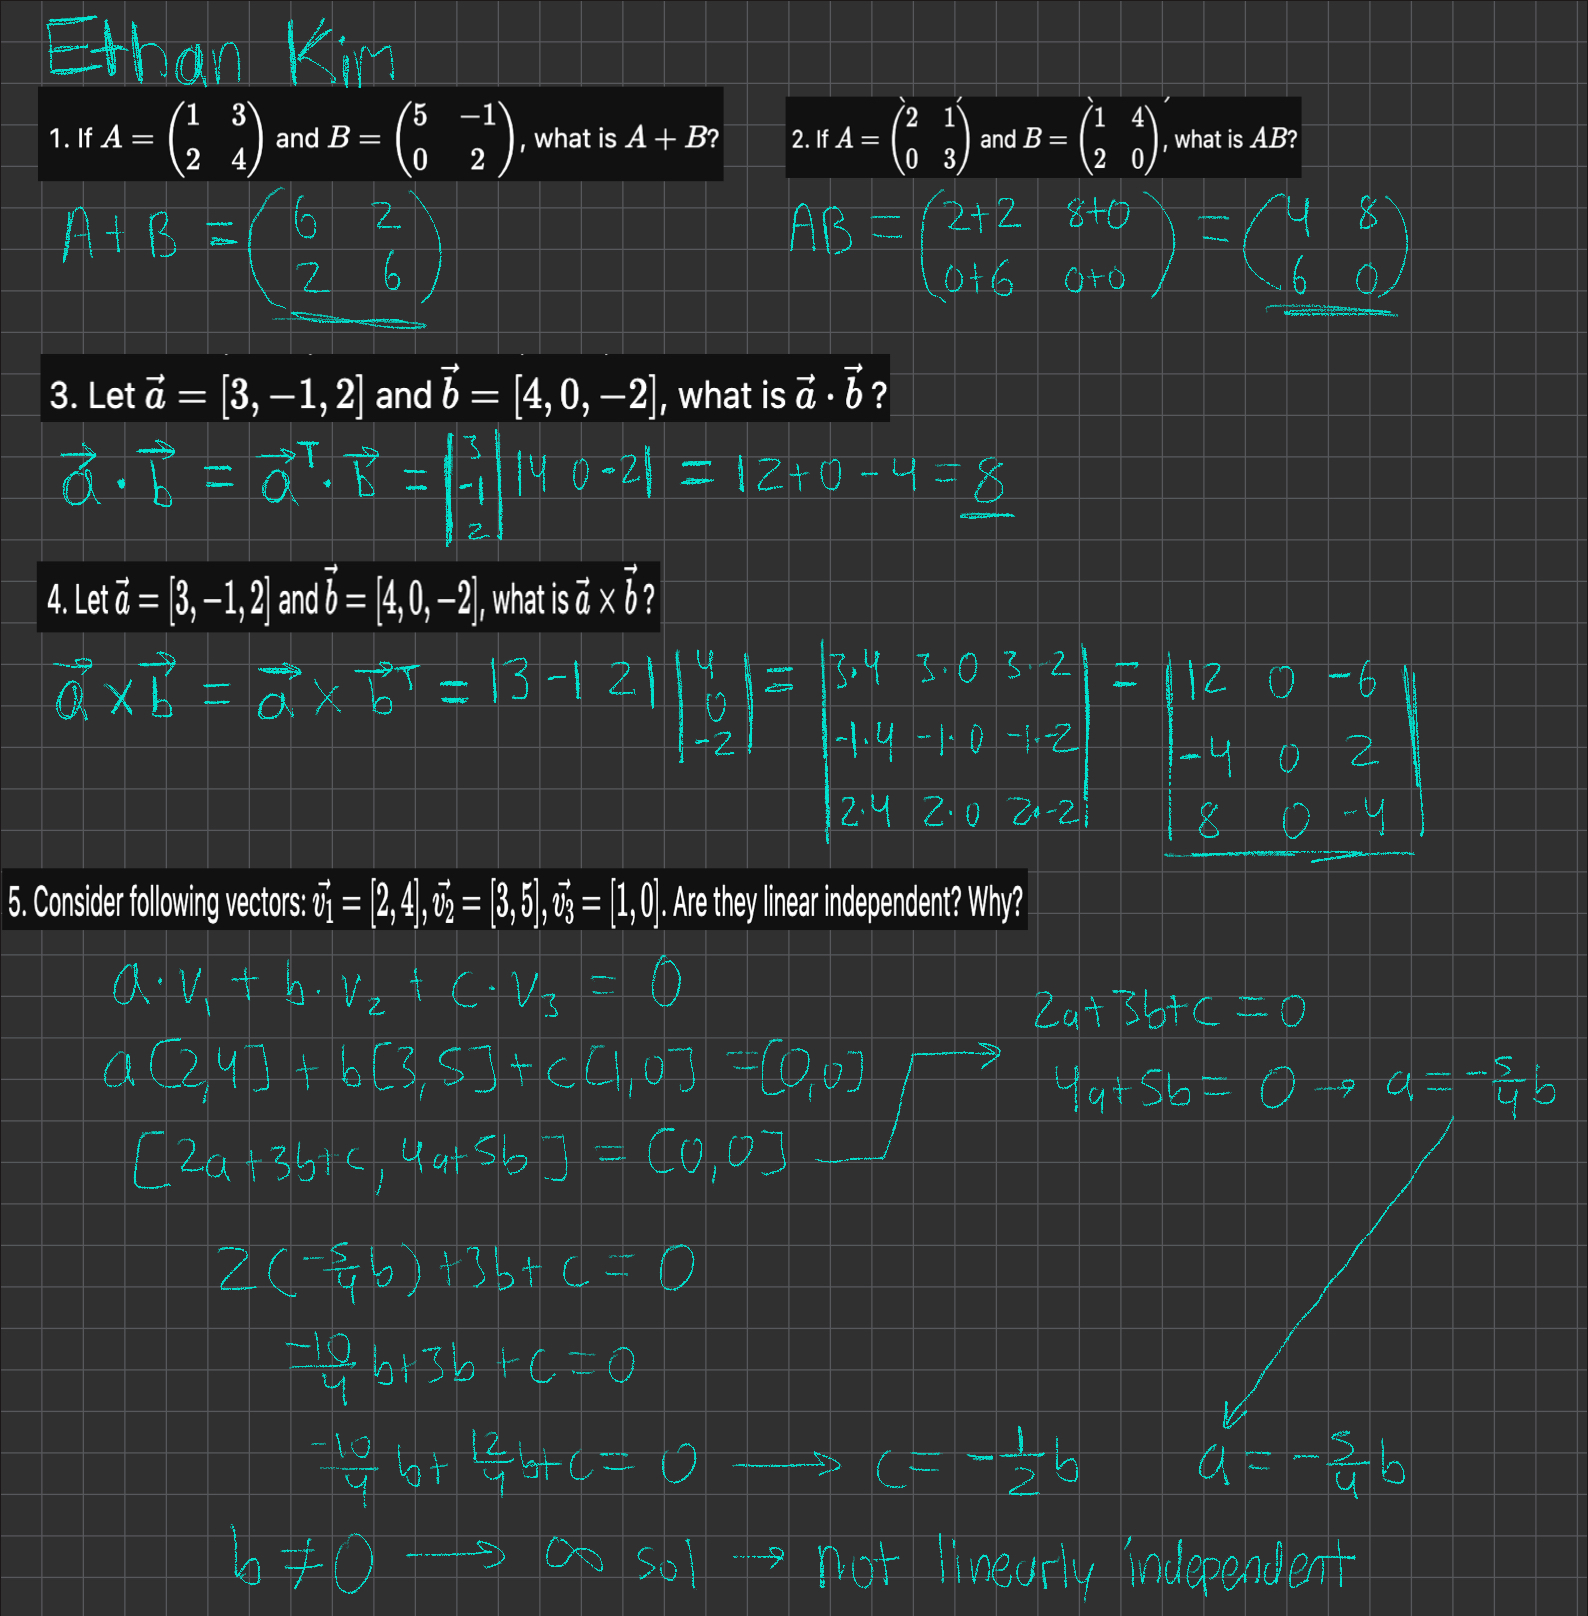 Ethan Kim
1. If A = (1 3; 2 4) and B = (5 −1; 0 2), what is A + B?
A+B = (6 2; 2 6)
2. If A = (2 1; 0 3) and B = (1 4; 2 0), what is AB?
AB = (2+2 8+0; 0+6 0+0) = (4 8; 6 0)
3. Let a⃗ = [3, −1, 2] and b⃗ = [4, 0, −2], what is a⃗ · b⃗ ?
a⃗ · b⃗ = a⃗ᵀ · b⃗ = |3; -1; 2| |4 0 -2| = 12+0-4 = 8
4. Let a⃗ = [3, −1, 2] and b⃗ = [4, 0, −2], what is a⃗ × b⃗ ?
a⃗ × b⃗ = a⃗ × b⃗ᵀ = |3 -1 2| |4; 0; -2| = |3·4 3·0 3·-2; -1·4 -1·0 -1·-2; 2·4 2·0 2·-2| = |12 0 -6; -4 0 2; 8 0 -4|
5. Consider following vectors: v⃗₁ = [2, 4], v⃗₂ = [3, 5], v⃗₃ = [1, 0]. Are they linear independent? Why?
a·v₁ + b·v₂ + c·v₃ = 0
a[2,4] + b[3,5] + c[1,0] = [0,0]
[2a+3b+c, 4a+5b] = [0,0]
2a+3b+c = 0
4a+5b = 0 → a = -5/4 b
2(-5/4 b) + 3b + c = 0
-10/4 b + 3b + c = 0
-10/4 b + 12/4 b + c = 0 → c = -1/2 b a = -5/4 b
b ≠ 0 → ∞ sol → not linearly independent